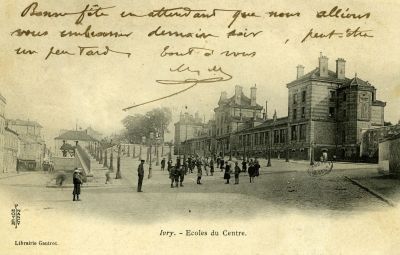 Bonne fête en attendant que nous allions
vous embrasser demain soir, peut-être
un peu tard. tout à vous
Ivry. - Ecoles du Centre.
Librairie Gautrot.